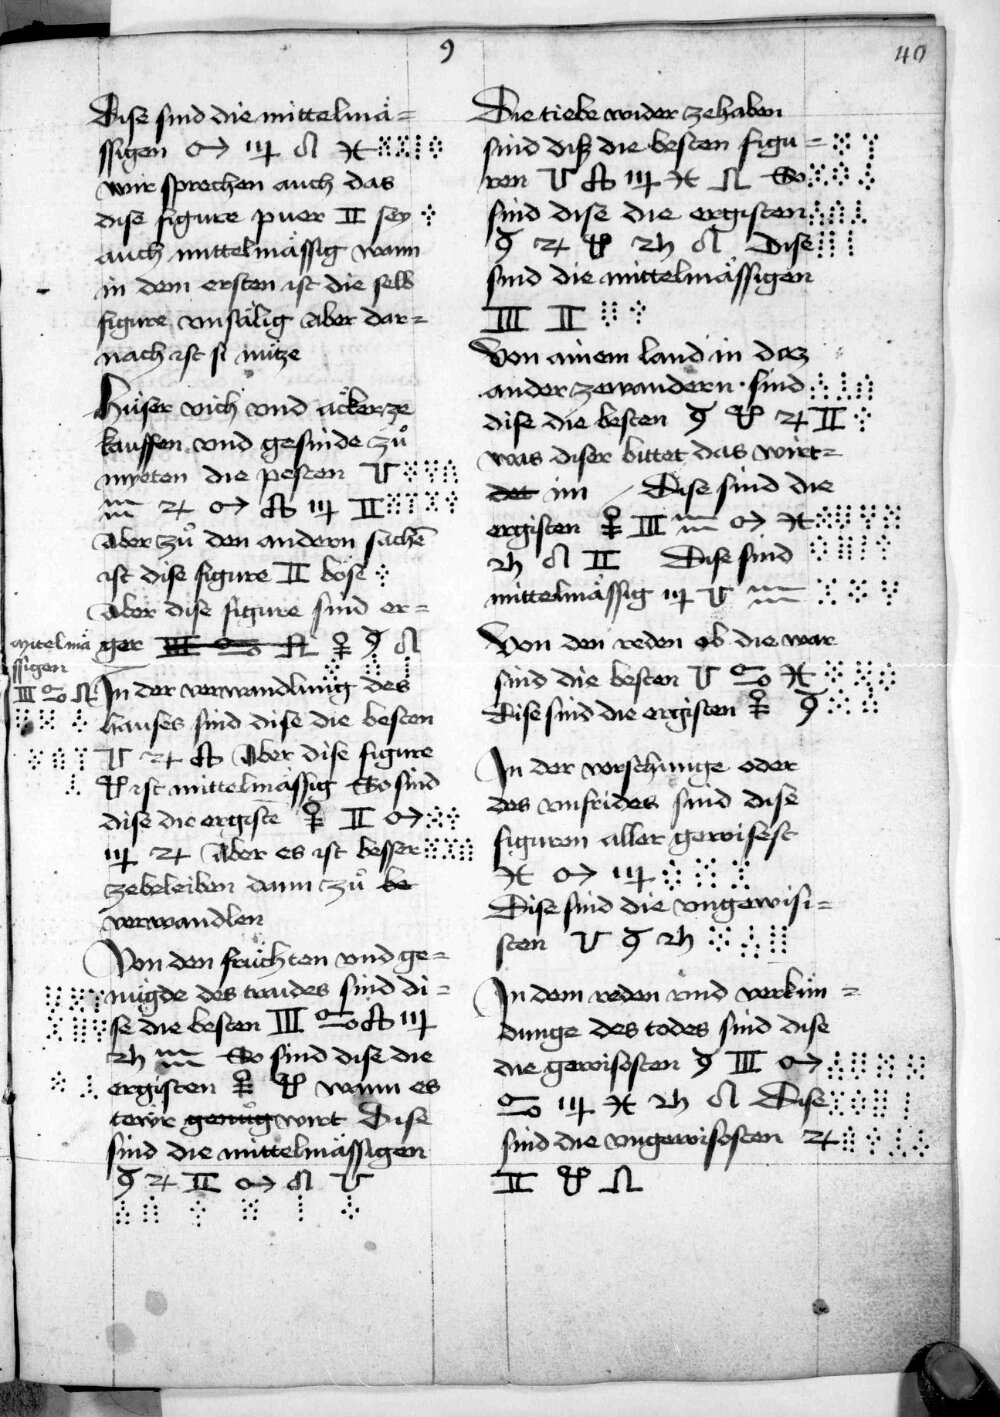 9
40
Dise sind die mittelmä=
ssigen ♂ ♍ ☊ ♓
wir sprechen auch das
dise figure puer II sey
auch mittelmässig wann
in dem ersten ist die selb
figure vnsälig Aber dar=
nach ist si nütze
Hüser vich vnd äcker ze
kauffen vnd gesinde zů
myeten die pesten ♉
♒ ♃ ♂ ♍ II
Aber zů den andern sachē
ist dise figure II böse
Aber dise figure sind er=
ger III ♋ ♎ ♀ ☊
mitelmä
ssigen
III ♋ ♎
In der verwandlung des
hauses sind dise die besten
♉ ♃ Aber dise figure
ist mittelmässig So sind
dise die ergiste ♀ II ♂
♍ ♃ Aber es ist besser
zebeleiben dann zů be
verwandlen
Von den früchten vnd ge=
nügde des traides sind di=
se die besten III ♋ ♍
♄ ♒ So sind dise die
ergisten ♀ wann es
tewr genůg wirt Dise
sind die mittelmässigen
♃ II ♂ ☊ ♉
Die tiebe wider zehaben
sind disz die besten figu=
ren ♉ ♍ ♓ ♎ So
sind dise die ergisten
♃ ♄ ☊ Dise
sind die mittelmässigen
III II
Von ainem land in daz
ander zewandern sind
dise die besten ♃ II
was diser bittet das wirt=
det im Dise sind die
ergisten ♀ III ♒ ♂ ♓
♄ ☊ II Dise sind
mittelmässig ♍ ♉ ♒
Von den reden ob die war
sind die besten ♉ ♋ ♓
Dise sind die ergisten ♀
In der vorschunge oder
des vnfrides sind dise
figuren aller gewisest
♓ ♂ ♍
Dise sind die vngewisi=
sten ♉ ♄
In dem reden vnd verkün=
dunge des todes sind dise
die gewisosten III ♂
♋ ♍ ♓ ♄ ☊ Dise
sind die vngewisosten ♃
II ♎